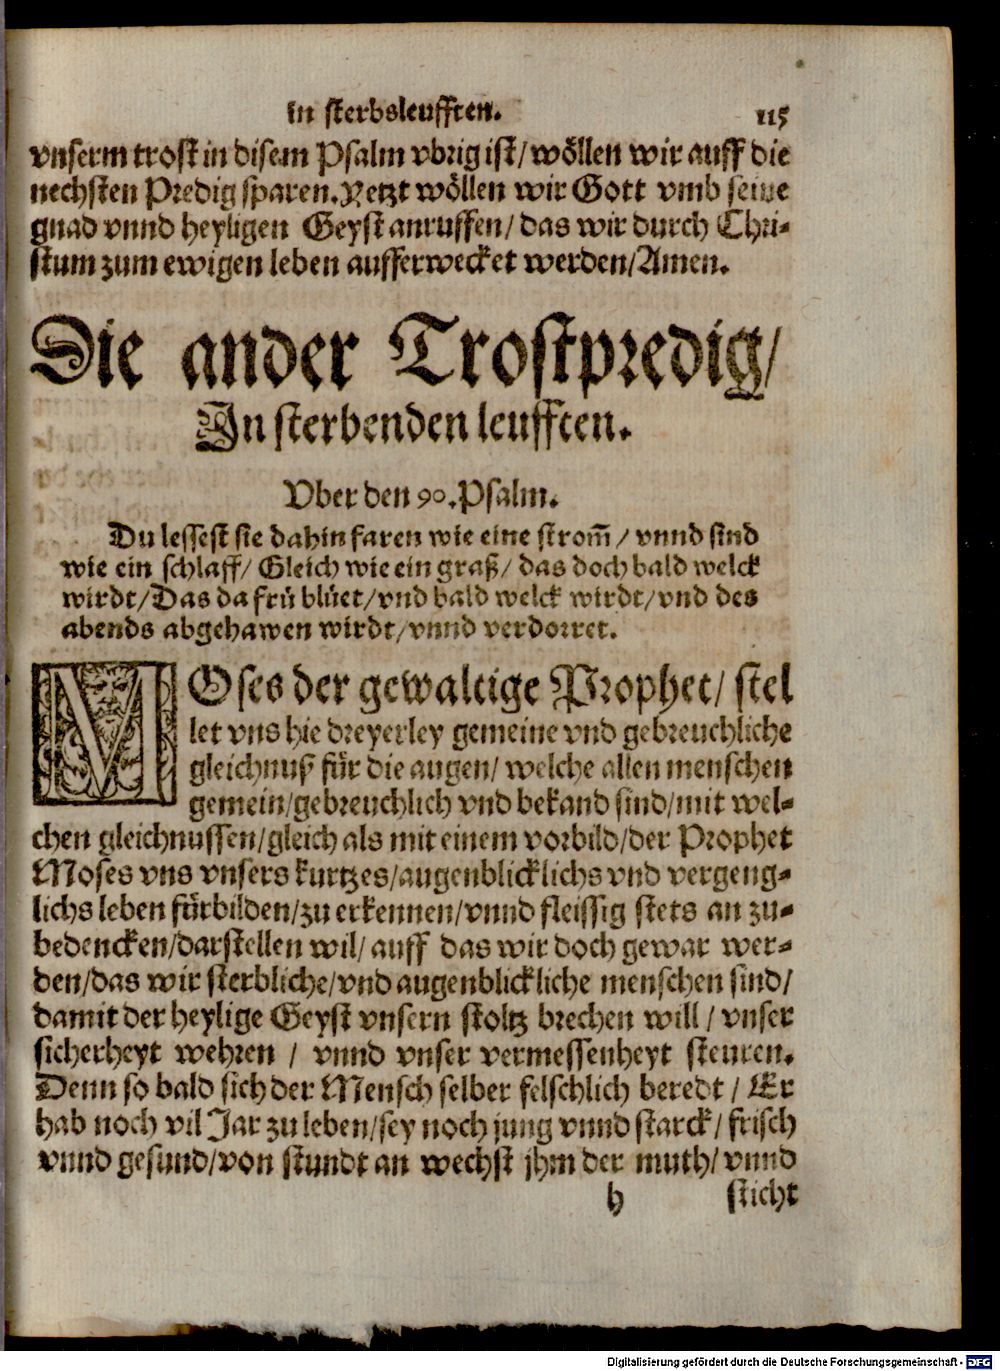 in sterbsleufften. 115
vnserm trost in disem Psalm vbrig ist/ wöllen wir auff die
nechsten Predig sparen. Yetzt wöllen wir Gott vmb seine
gnad vnnd heyligen Geyst anruffen/ das wir durch Chri-
stum zum ewigen leben aufferwecket werden/ Amen.
Die ander Trostpredig/
In sterbenden leufften.
Vber den 90. Psalm.
Du lessest sie dahin faren wie eine strom̃/ vnnd sind
wie ein schlaff/ Gleich wie ein graß/ das doch bald welck
wirdt/ Das da frü blüet/ vnd bald welck wirdt/ vnd des
abends abgehawen wirdt/ vnnd verdorret.
MOses der gewaltige Prophet/ stel
let vns hie dreyerley gemeine vnd gebreuchliche
gleichnuß für die augen/ welche allen menschen
gemein/ gebreuchlich vnd bekand sind/ mit wel-
chen gleichnussen/ gleich als mit einem vorbild/ der Prophet
Moses vns vnsers kurtzes/ augenblicklichs vnd vergeng-
lichs leben fürbilden/ zu erkennen/ vnnd fleissig stets an zu-
bedencken/ darstellen wil/ auff das wir doch gewar wer-
den/ das wir sterbliche/ vnd augenblickliche menschen sind/
damit der heylige Geyst vnsern stoltz brechen will/ vnser
sicherheyt wehren/ vnnd vnser vermessenheyt steuren.
Denn so bald sich der Mensch selber felschlich beredt/ Er
hab noch vil Jar zu leben/ sey noch jung vnnd starck/ frisch
vnnd gesund/ von stundt an wechst jhm der muth/ vnnd
h sticht
Digitalisierung gefördert durch die Deutsche Forschungsgemeinschaft - DFG